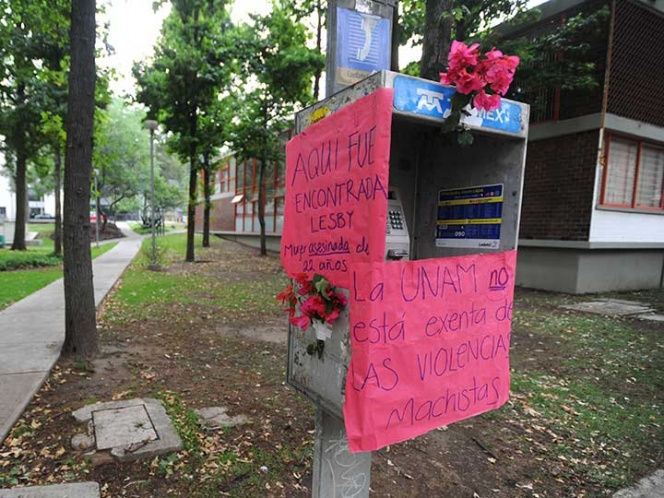 MEX
AQUÍ FUE
ENCONTRADA
LESBY
Mujer asesinada de
22 años
La UNAM no
está exenta de
LAS VIOLENCIAS
Machistas